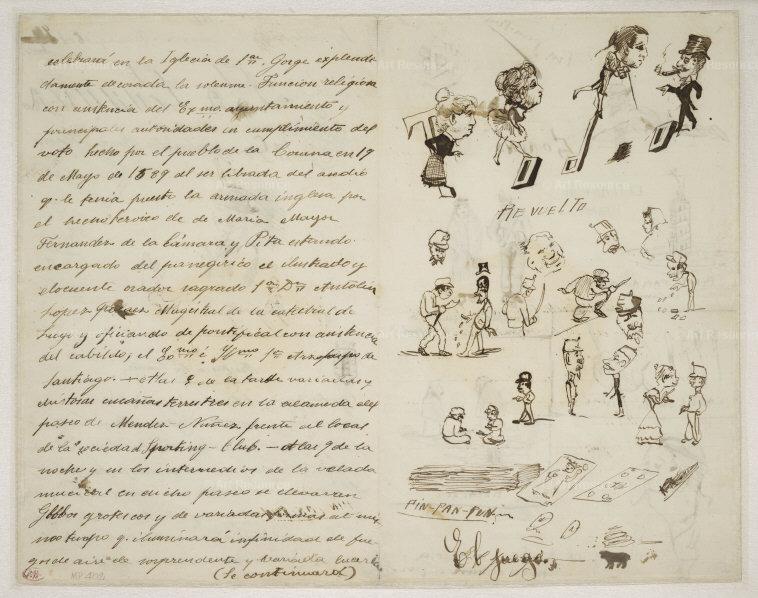 celebrará en la Iglecia de Sn. Gorge explendi
damente decorada la solemn. Funcion religiosa
con asistencia del Exmo. ayuntamiento y
principales autoridades en cumplimiento del
voto hecho por el pueblo de la Coruña en 19
de Mayo de 1589 al ser librada del
q. le tenia puesto la armada inglesa por
el hecho heroico de de Maria Mayor
Fernandez de la Cámara y Pita estando
encargado del panegirico el ilustrado y
elocuente orador sagrado Sr. Dn Antolin
Lopez Magistral de la catedral de
Lugo y oficiando de pontifical con asistencia
del cabildo, el Eo mo é Yllmo, Sr Arzobispo de
Santiago. - A las de la tarde variadas y
chistosas cucañas terrestres en la alameda del
paseo de Mendez Nuñez frente al local
de "la" sociedad Sporting-Club. - A las 9 de la
noche y en los intermedios de la velada
musical en dicho paseo se elevaran
Globos grotescos y de variadas formas al mis
mo tiempo q. iluminará infinidad de fue
gos de aire de sorprendente y variada
(Se continuará)
REVUELTO
PIN-PAN-PUN
El juego.
MP 402
Art Resource